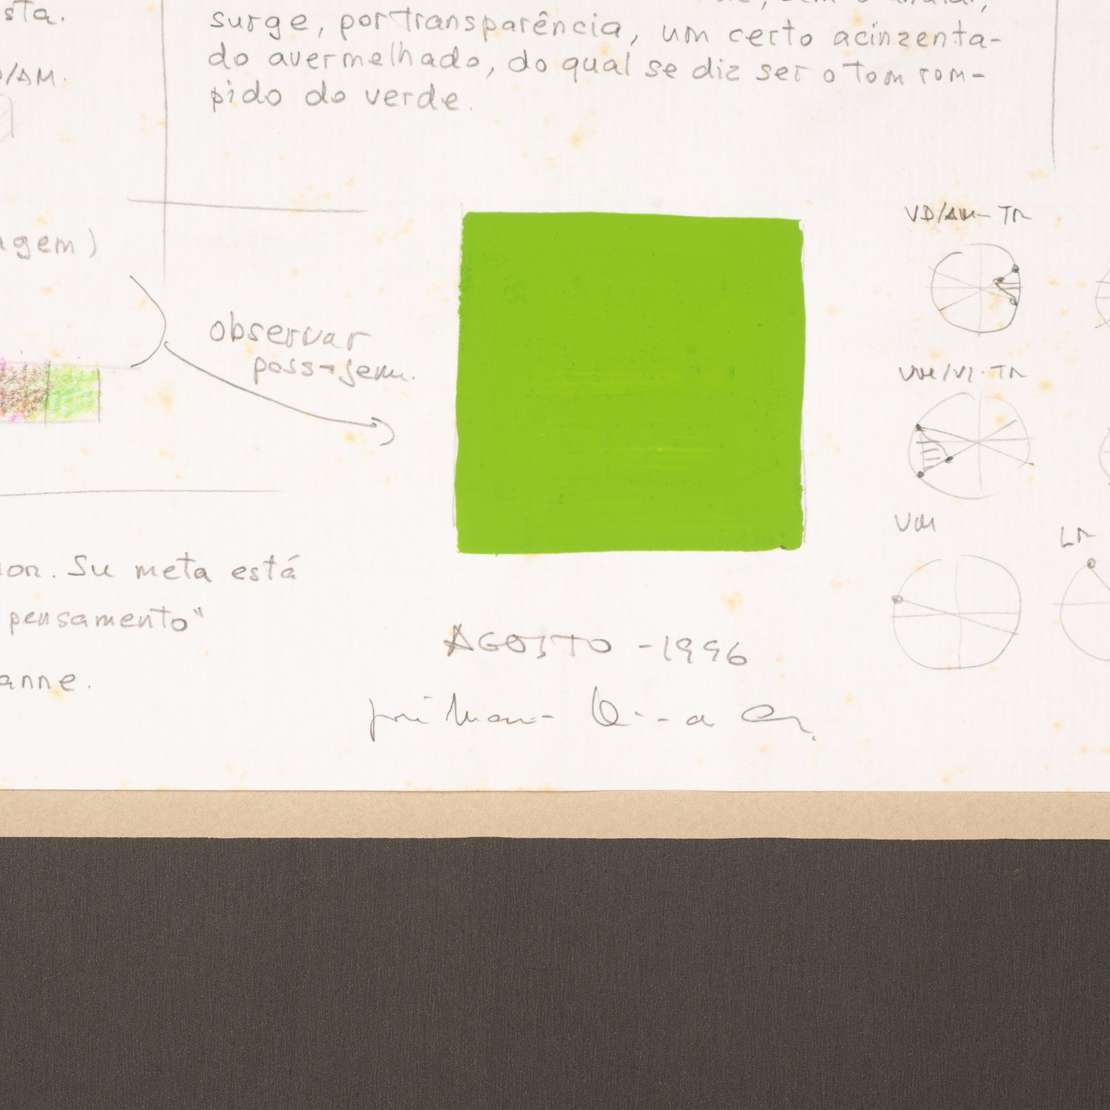 sta.
surge, por transparência, um certo acinzenta-
do avermelhado, do qual se diz ser o tom rom-
pido do verde.
/AM.
agem)
VD/AM-TR
observar
passagem.
VM/VI-TR
VM
LR
on. Su meta está
pensamento"
anne.
AGOSTO - 1996